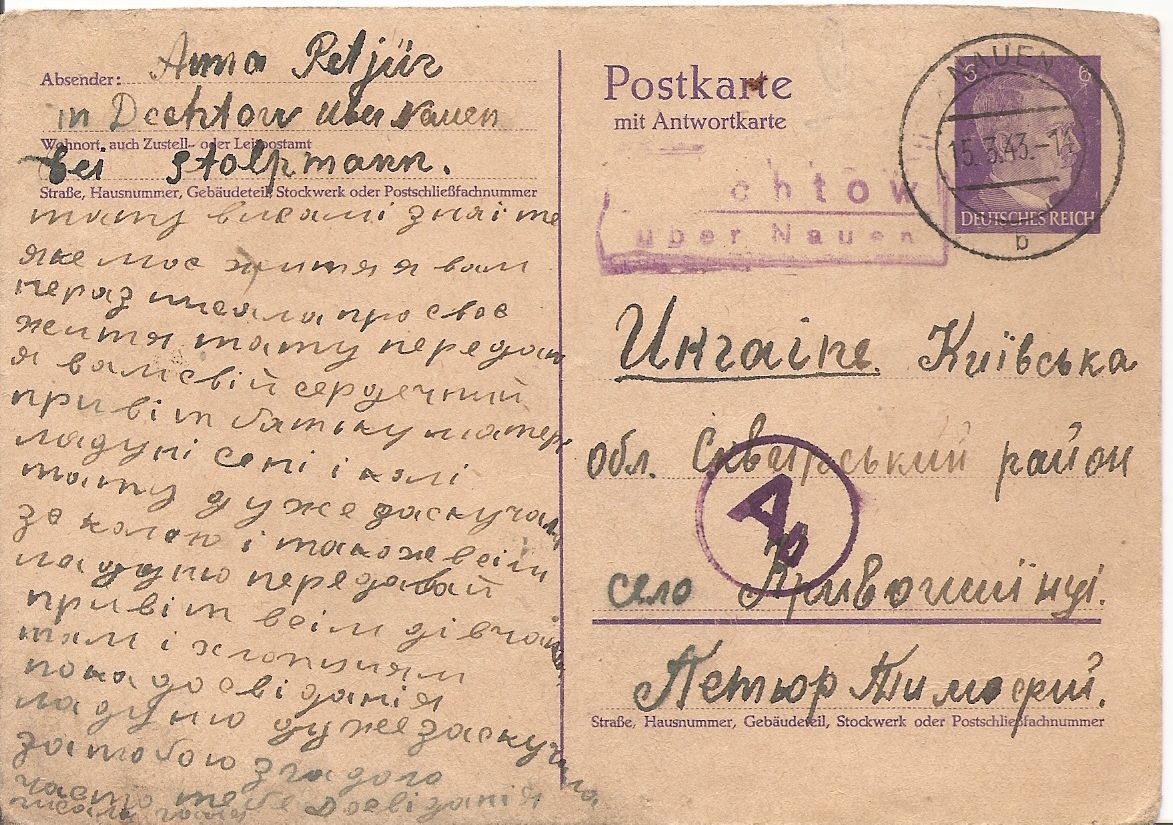 Absender: Anna Petjür
in Dechtow über Nauen
Wohnort, auch Zustell- oder Leitpostamt
bei Stolpmann.
Straße, Hausnummer, Gebäudeteil, Stockwerk oder Postschließfachnummer
тату висамі знаїте
яке моє життя я вам
нераз писала про своє
життя тату передаю
я вам свій сердечний
привіт батьку матері
ладуні сені і колі
тату дуже заскучала
за колею і також всім
ладуню передавай
привіт всім дівчатам
і хлопцям
пока до свіданія
ладуню дуже заскучала
за тобою згадую
часто тебе досвіданія
писала
Postkarte
mit Antwortkarte
NAUEN
15.3.43.-14
b
6 6
DEUTSCHES REICH
chtow
über Nauen
Ukraine. Київська
обл. Сквирський район
Ab
село Кривошиїнці.
Петюр Тимофій.
Straße, Hausnummer, Gebäudeteil, Stockwerk oder Postschließfachnummer